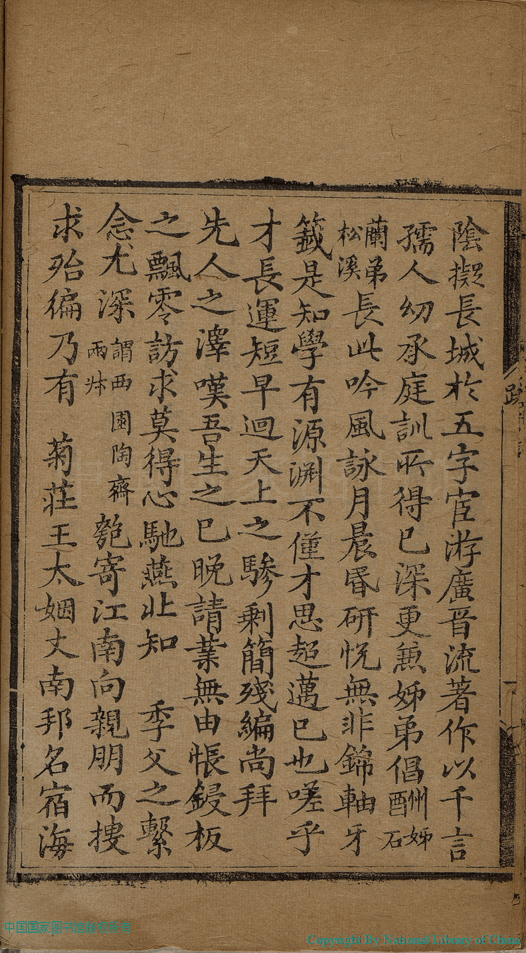 陰擬長城於五字宦游廣晉流著作以千言
孺人幼承庭訓所得已深更兼姊弟倡酬州姊石
蘭弟松溪長此吟風詠月晨昏研悅無非錦軸牙
籤是知學有源淵不僅才思超邁已也嗟乎
才長運短早迴天上之驂剩簡殘編尚拜
先人之澤嘆吾生之已晚請業無由悵鋟板
之飄零訪求莫得心馳燕北知 季父之繫
念尤深謂西園陶齋兩妹郵寄江南向親朋而搜
求殆徧乃有 菊莊王太姻丈南邦名宿海
跋
Copyright by National Library of China